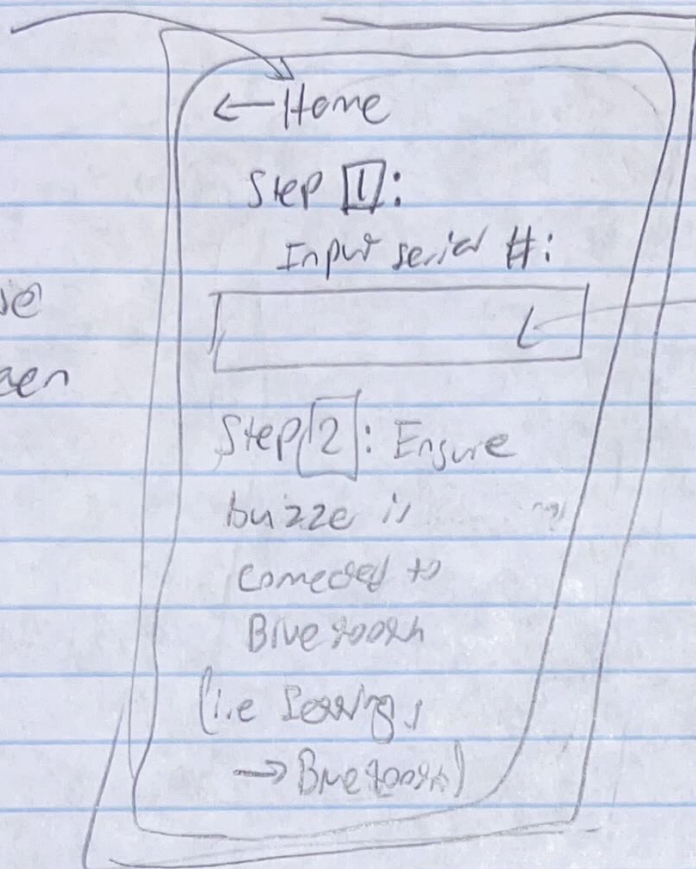 ← Home
Step 1:
Input serial #:
Step 2: Ensure
buzze is
connected to
Bluetooth
(i.e Settings
→ Bluetooth)